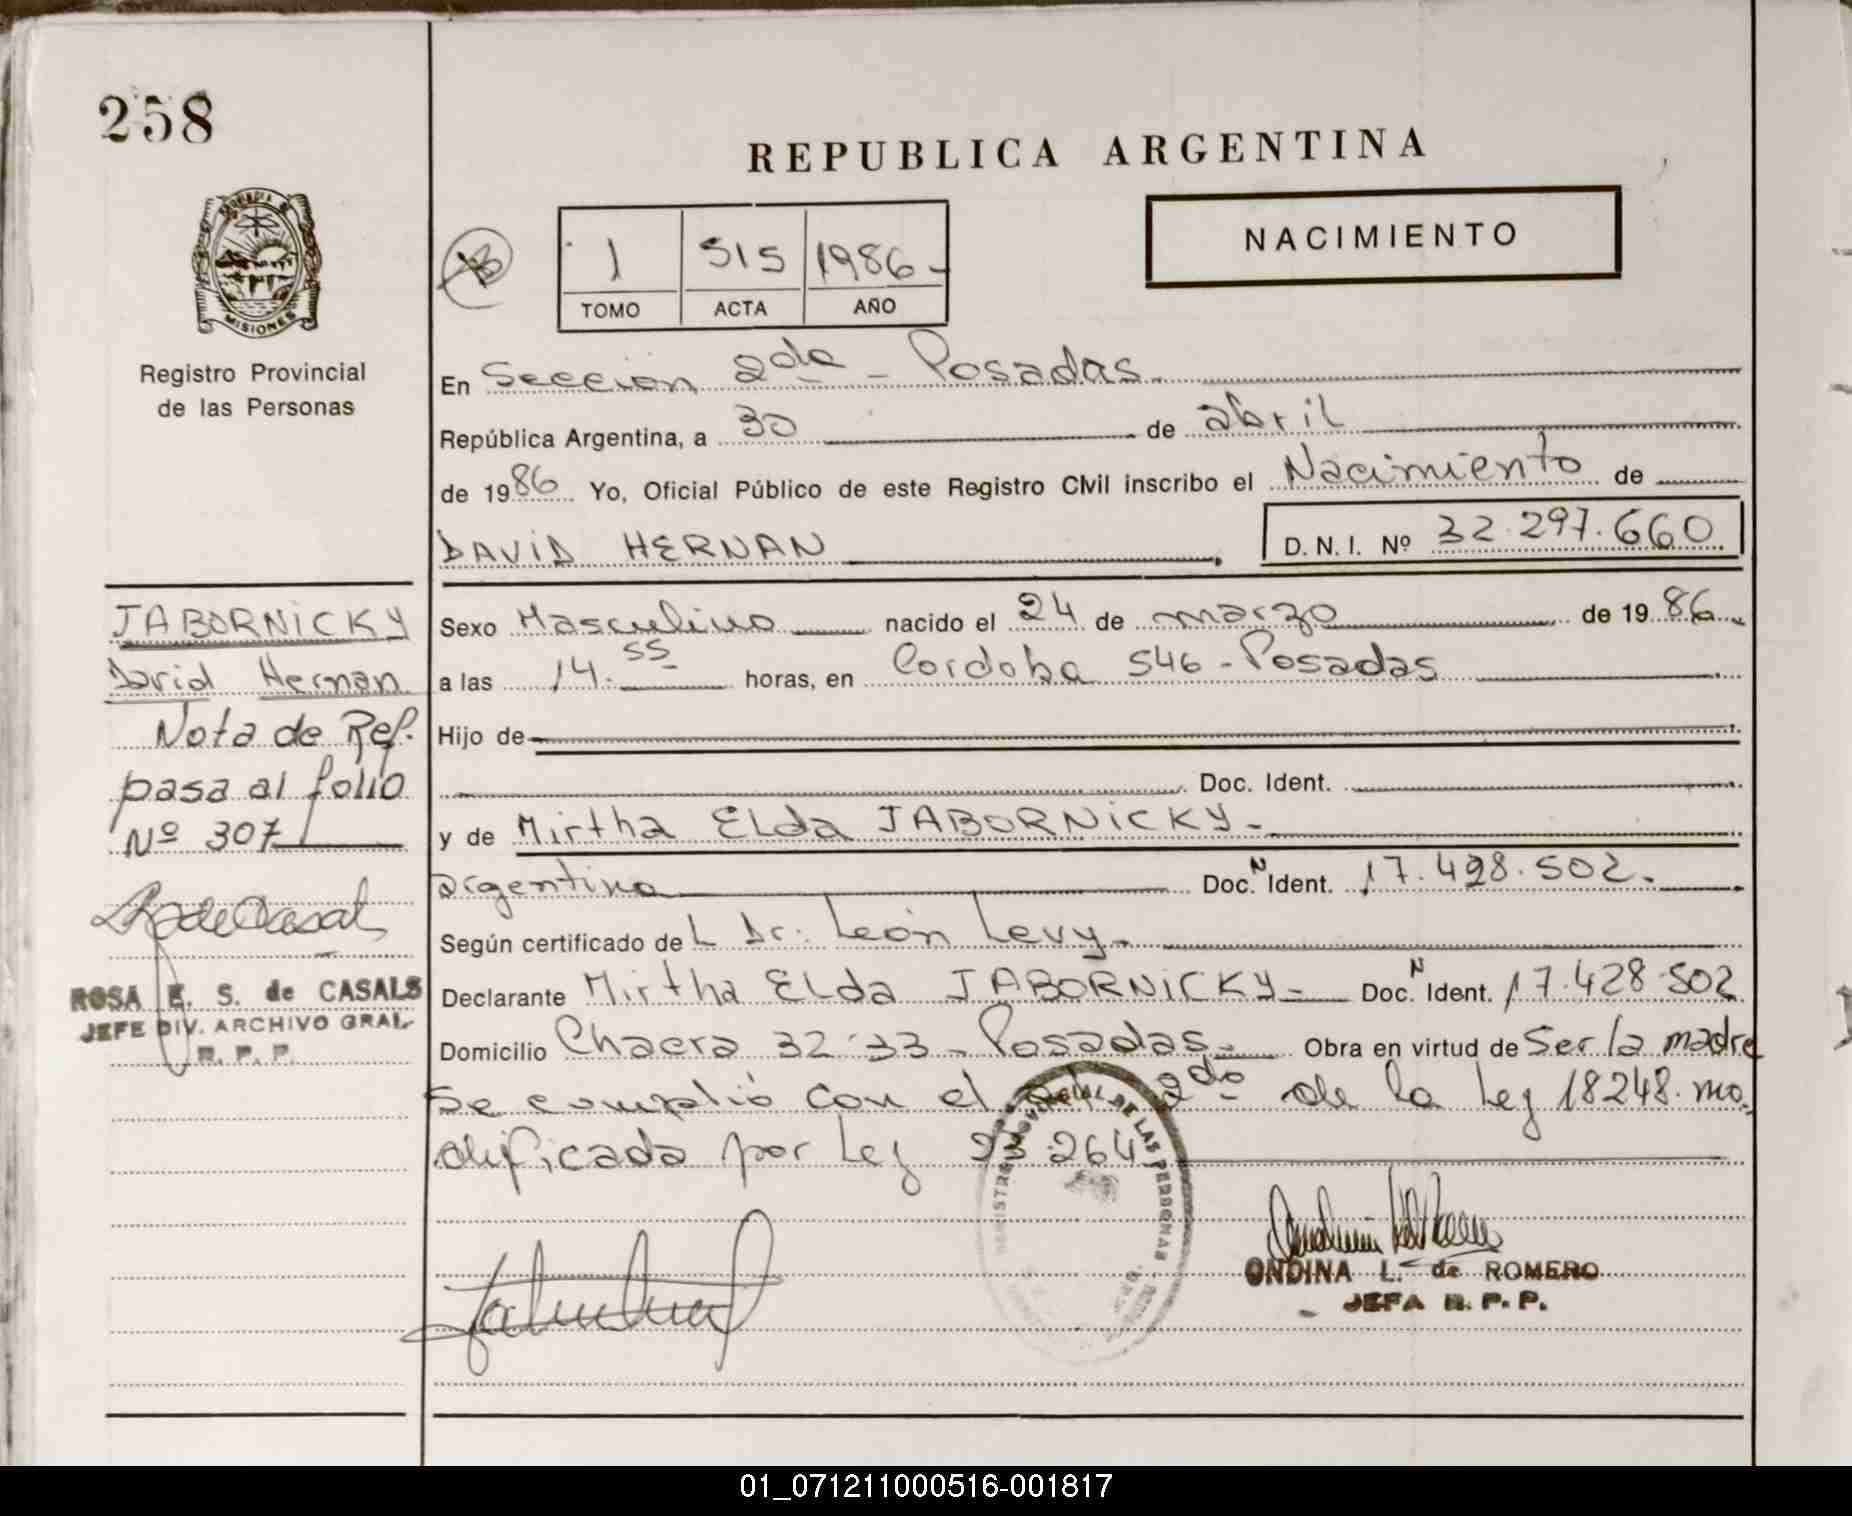 258
REPUBLICA ARGENTINA
NACIMIENTO
1 515 1986-
TOMO ACTA AÑO
MISIONES
Registro Provincial
de las Personas
En Sección 2da - Posadas.
República Argentina, a 30 de abril
de 1986 Yo, Oficial Público de este Registro Civil inscribo el Nacimiento de
DAVID HERNAN D. N. I. Nº 32.297.660
Sexo Masculino nacido el 24 de marzo de 1986
a las 14.55 horas, en Cordoba 546 - Posadas
Hijo de
Doc. Ident.
y de Mirtha Elda JABORNICKY-
argentina Doc. N Ident. 17.428.502.
Según certificado del Dr. León Levy.
Declarante Mirtha Elda JABORNICKY- Doc. N Ident. 17.428.502
Domicilio Chacra 32-33 - Posadas- Obra en virtud de Ser la madre
Se cumplió con el 2do de la Ley 18248. mo-
dificada por Ley 23.264
JABORNICKY
David Hernan
Nota de Ref.
pasa al folio
Nº 307
ROSA E. S. de CASALS
JEFE DIV. ARCHIVO GRAL.
R. P. P.
ONDINA L. de ROMERO
JEFA R. P. P.
01_071211000516-001817